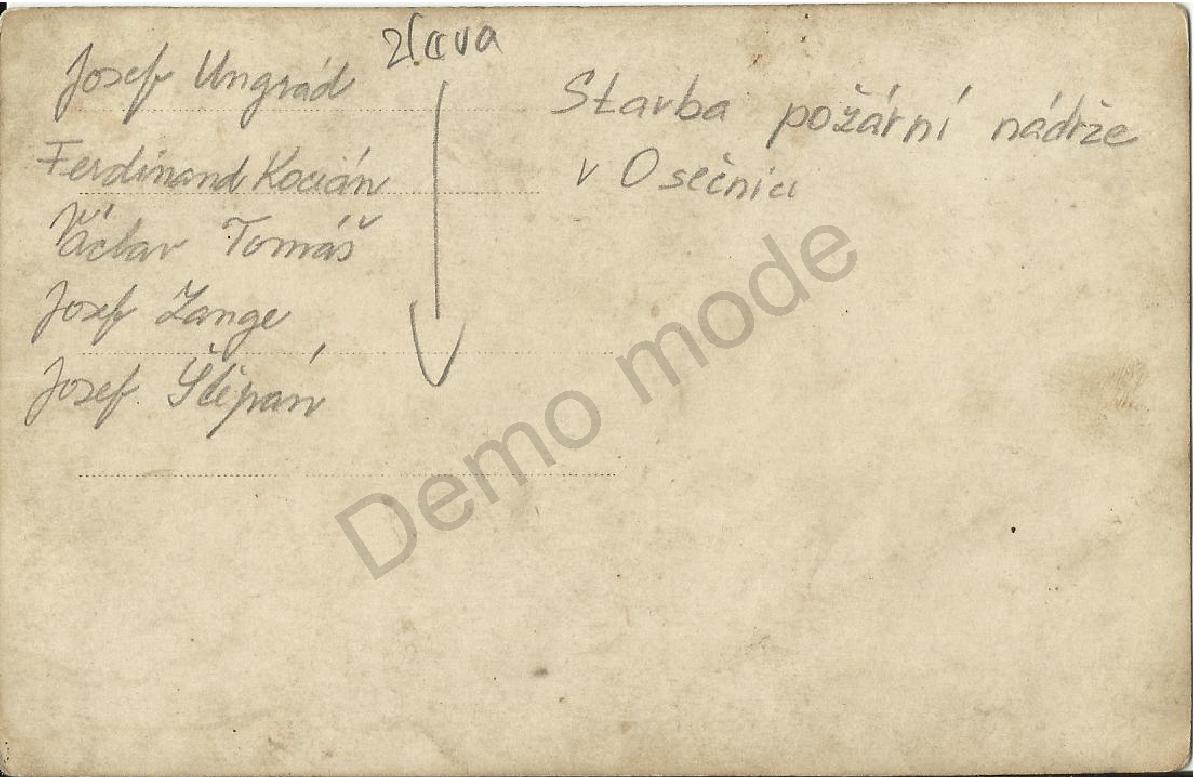 zleva
Josef Ungrád
Ferdinand Kocián
Václav Tomáš
Josef Lange
Josef Štěpán
Stavba požární nádrže
v Osečnici
Demo mode